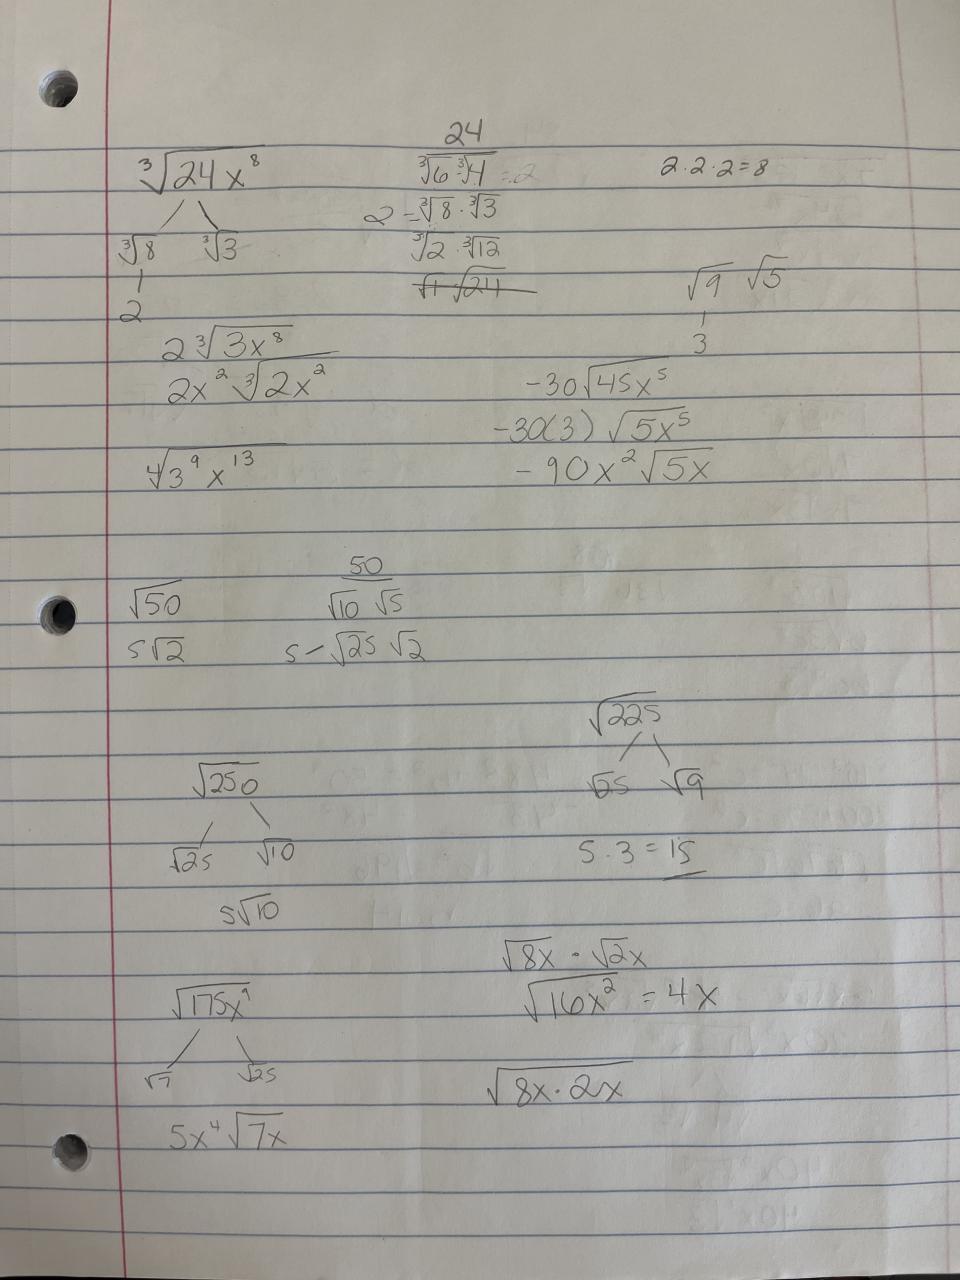 ∛24x⁸
∛8 ∛3
2
2∛3x⁸
2x²∛2x²
24
∛6 ∛4 = 2
2 = ∛8 · ∛3
∛2 · ∛12
√1 √24
2 · 2 · 2 = 8
√9 √5
3
-30√45x⁵
-30(3) √5x⁵
- 90x²√5x
∜3⁹x¹³
√50
5√2
50
√10 √5
5 - √25 √2
√225
√25 √9
5 . 3 = 15
√250
√25 √10
5√10
√8x · √2x
√16x² = 4x
√8x · 2x
√175x⁹
√7 √25
5x⁴√7x